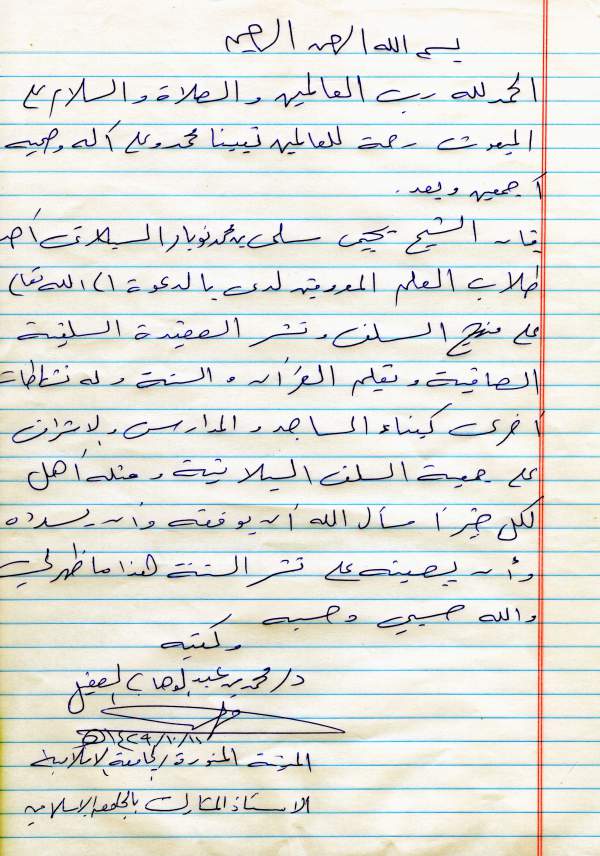 بسم الله الرحمن الرحيم
الحمد لله رب العالمين والصلاة والسلام على
المبعوث رحمة للعالمين نبينا محمد وعلى آله وصحبه
أجمعين وبعد.
فإن الشيخ يحيى سلمي بن محمد نوبار السيلاني أحد
طلاب العلم المعروفين لدي بالدعوة إلى الله تعالى
على منهج السلف ونشر العقيدة السلفية
الصافية وتعليم القرآن والسنة وله نشاطات
أخرى كبناء المساجد والمدارس والإشراف
على جمعية السلف السيلانية ومثله أهل
لكل خير أسأل الله أن يوفقه وأن يسدده
وأن يعينه على نشر السنة هذا ما ظهر لي
والله حسبي وحسبه
وكتبه
د/ محمد بن عبد الوهاب العقيل
المدينة المنورة / الجامعة الإسلامية
الأستاذ المشارك بالجامعة الإسلامية